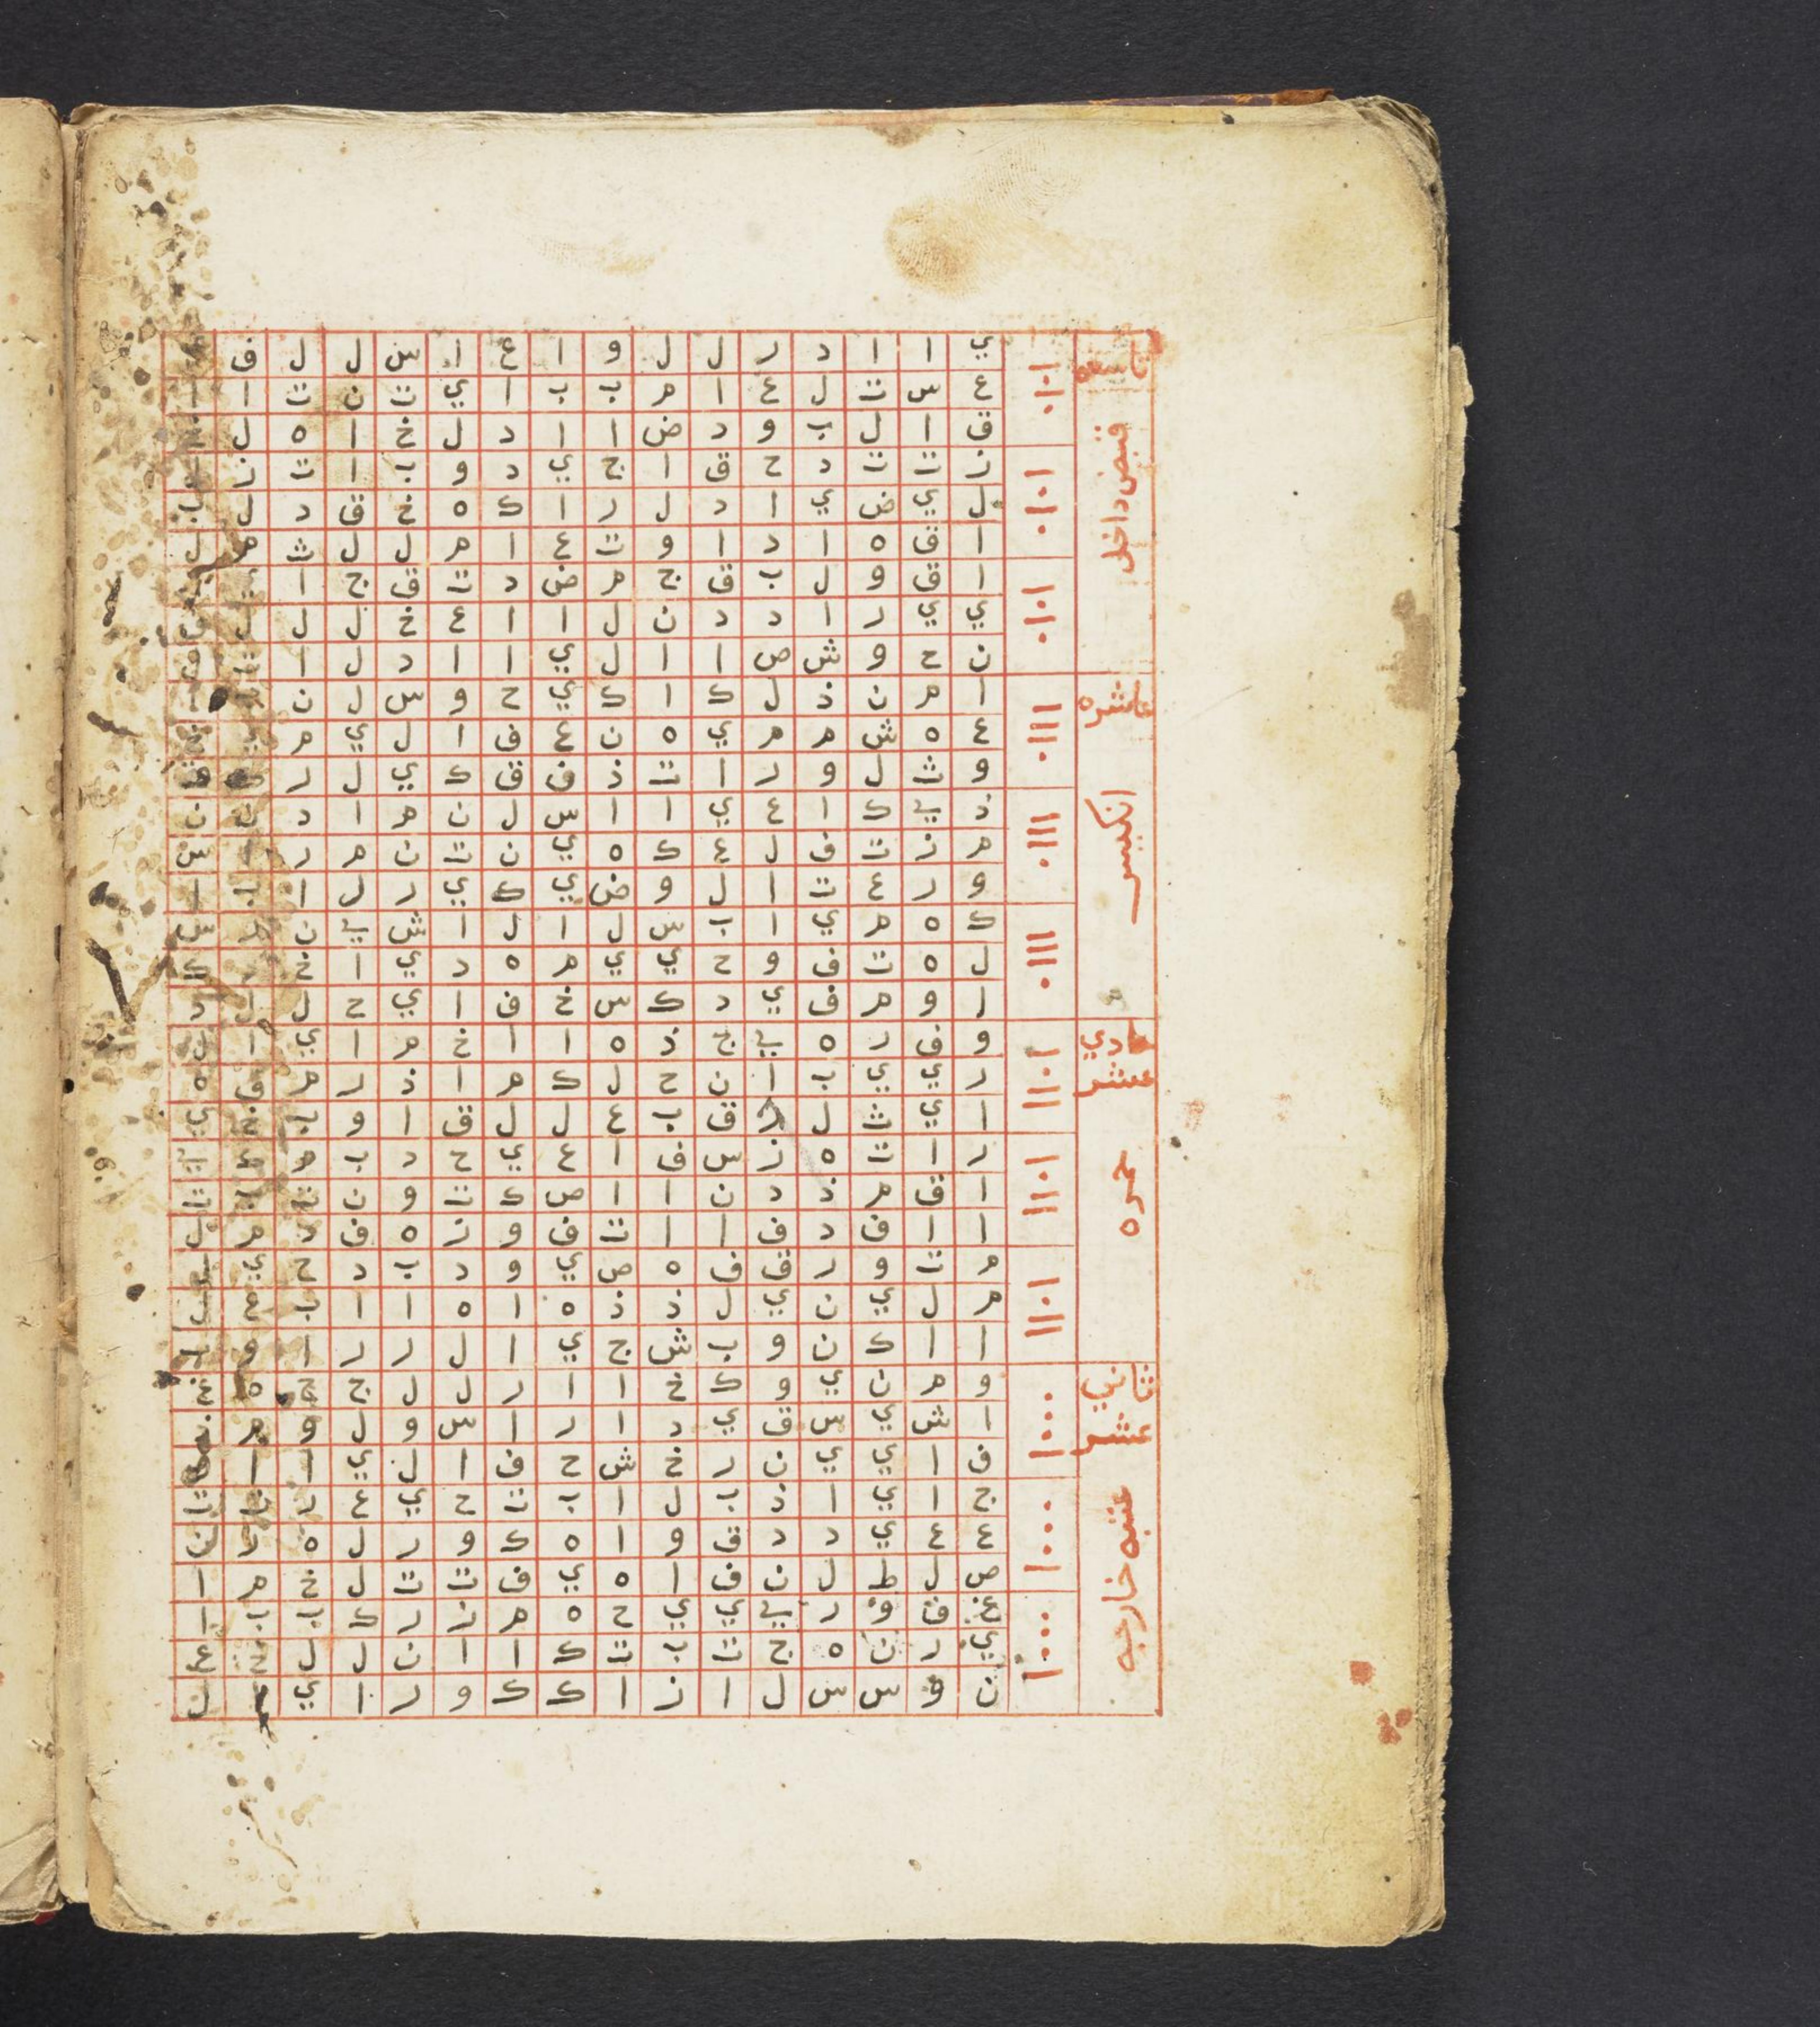 تاسعه
قبض داخل
عاشره
انكيس
حادي
عشر
حمره
ثاني
عشر
عتبه خارجه
ي ا ا د ر ل ل و ا ع ا س ل ل ف
ع س ت ل ع ا م ب ب ا ي ت ن ت ا ا
ق ا ل ب و د ض ا ا د ل خ ا ه ل
ن ت ت د ح ق ا ج ي د و ب ا ت ن
ل ي ض ي ا د ل ر ا ك ه خ ق د ل ب
ا ق ه ا د ا و ت ع ا م ل ل ث م ل
ا ق و ل ب ق ج م ض د ت ق ج ا
ي ي ر ا د د ن ل ا ا ع خ ل ل ل
ن ح و ش ص ا ا ل ي ا ا د ل ا
ا م ن ذ ل ك ا ك ي ح و س ل ن
ع ه ش م م ي ه ن ع ف ا ل ي م
و ث ل و ر ا ت ذ ف ق ك ي ل ر
ذ ي ك ا ع ي ا ا س ل ن م ا د ن ن
م ن ت ف ل ع ك ه ي ن ت ن م ر ا س
و ر ع ت ا ل و ض ي ك ي ر ل ا ب ا
ك ه م ي ا ب س ل ا ل ا ش ي ن س
ل ه ت ف و ح ي ي م ه د ي ا خ ر ك
ا و م ف ي د ك س خ ف ا ي ح ل ل د
و ف ر ه ي ج ذ ه ا ا خ م ا ي ا ل
ر ي ي ب ا ن ح ل ك م ا ذ ر م ف ه
ا ي ث ل د ق ب ع ل ل ق ا و ب خ ي
ر ا ت ه ز س ف ا ع ي ح د ب م
ا ق م ذ د ن ا ا ص ك ت و ن ت
ا ا ف د ف ا ا ت ف و ز ه ف د م ل
م ت و ر ق ف ه ص ي و د ب د ح ي
م ل ي ن ي ل ذ ذ ه ا ه ا ا ب
ا ا ك ن و ب ش ج ي ا ل ر ر ا و ا
و م ن ي و ك خ ا ا ر ل ل ج ج ه خ
ا ش ي س ق ي د ا ر ا س و ل و م
ف ا ي ي ن ر خ ش ح ف ا ل ي ا ا
ج ا ي ا ذ ب ل ا ب ت ح ي ع ر
ع ع ي د د ق و ا ه ك و ر ل ه ر ن
ص ل ط ل ن ف ا ه ي ف ت ت ل خ م ا
غ ف و ر ي ي ي ح ه م ن ر ك ب ب ا
ي ر ن ه ج ت ب ت ك ا ا ن ل ل ع
ن و س س ل ا ن ا ك ك و ر ا ي ل